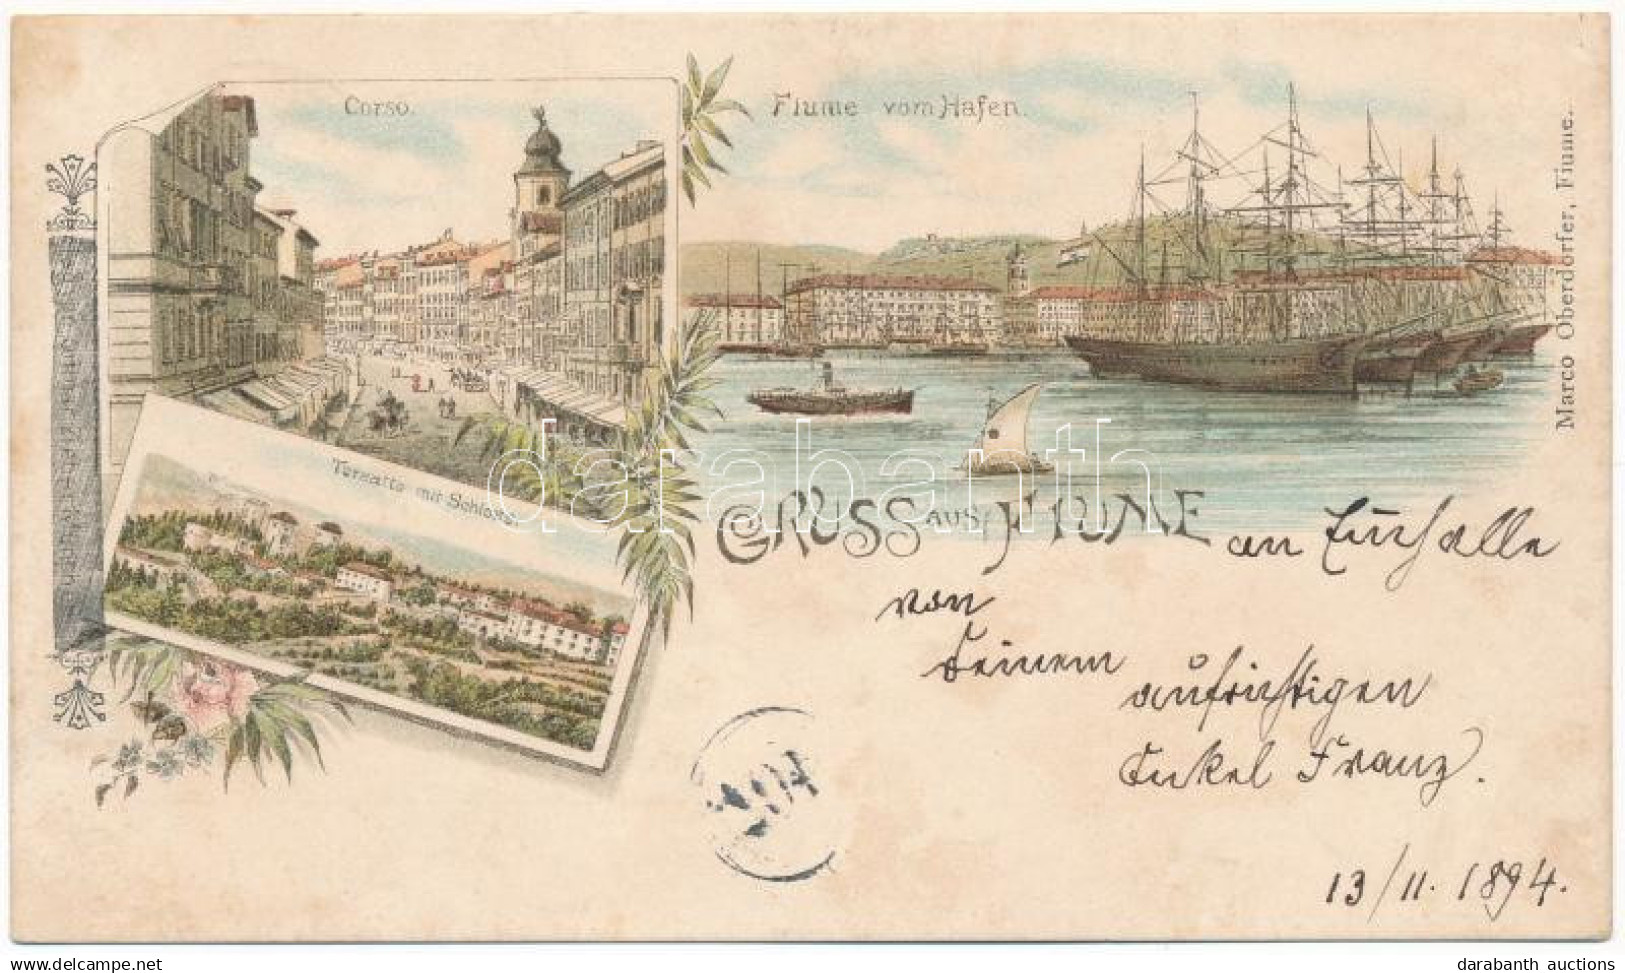 Corso.
Fiume vom Hafen.
Marco Oberdorfer, Fiume.
Tersatto mit Schloss.
darabanth
GRUSS AUS FIUME
an Euch alle
von
Deinem
aufrichtigen
Enkel Franz.
13/11. 1894.
darabanth auctions